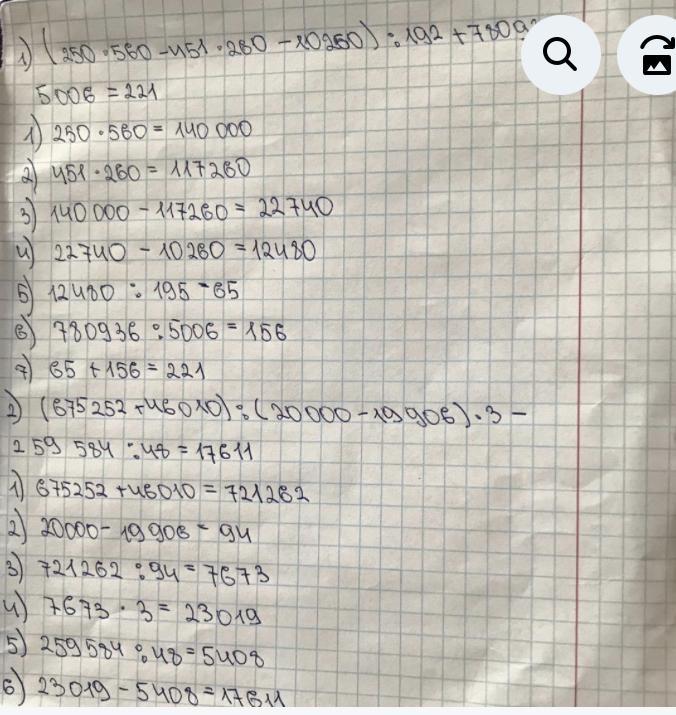 1) (250 · 560 - 451 · 260 - 10260) : 192 + 78093
5006 = 221
1) 250 · 560 = 140 000
2) 451 · 260 = 117260
3) 140 000 - 117260 = 22740
4) 22740 - 10260 = 12480
5) 12480 : 195 = 65
6) 780936 : 5006 = 156
7) 65 + 156 = 221
2) (675252 + 46010) : (20000 - 19906) · 3 -
259 584 : 48 = 17611
1) 675252 + 46010 = 721262
2) 20000 - 19906 = 94
3) 721262 : 94 = 7673
4) 7673 · 3 = 23019
5) 259584 : 48 = 5408
6) 23019 - 5408 = 17611